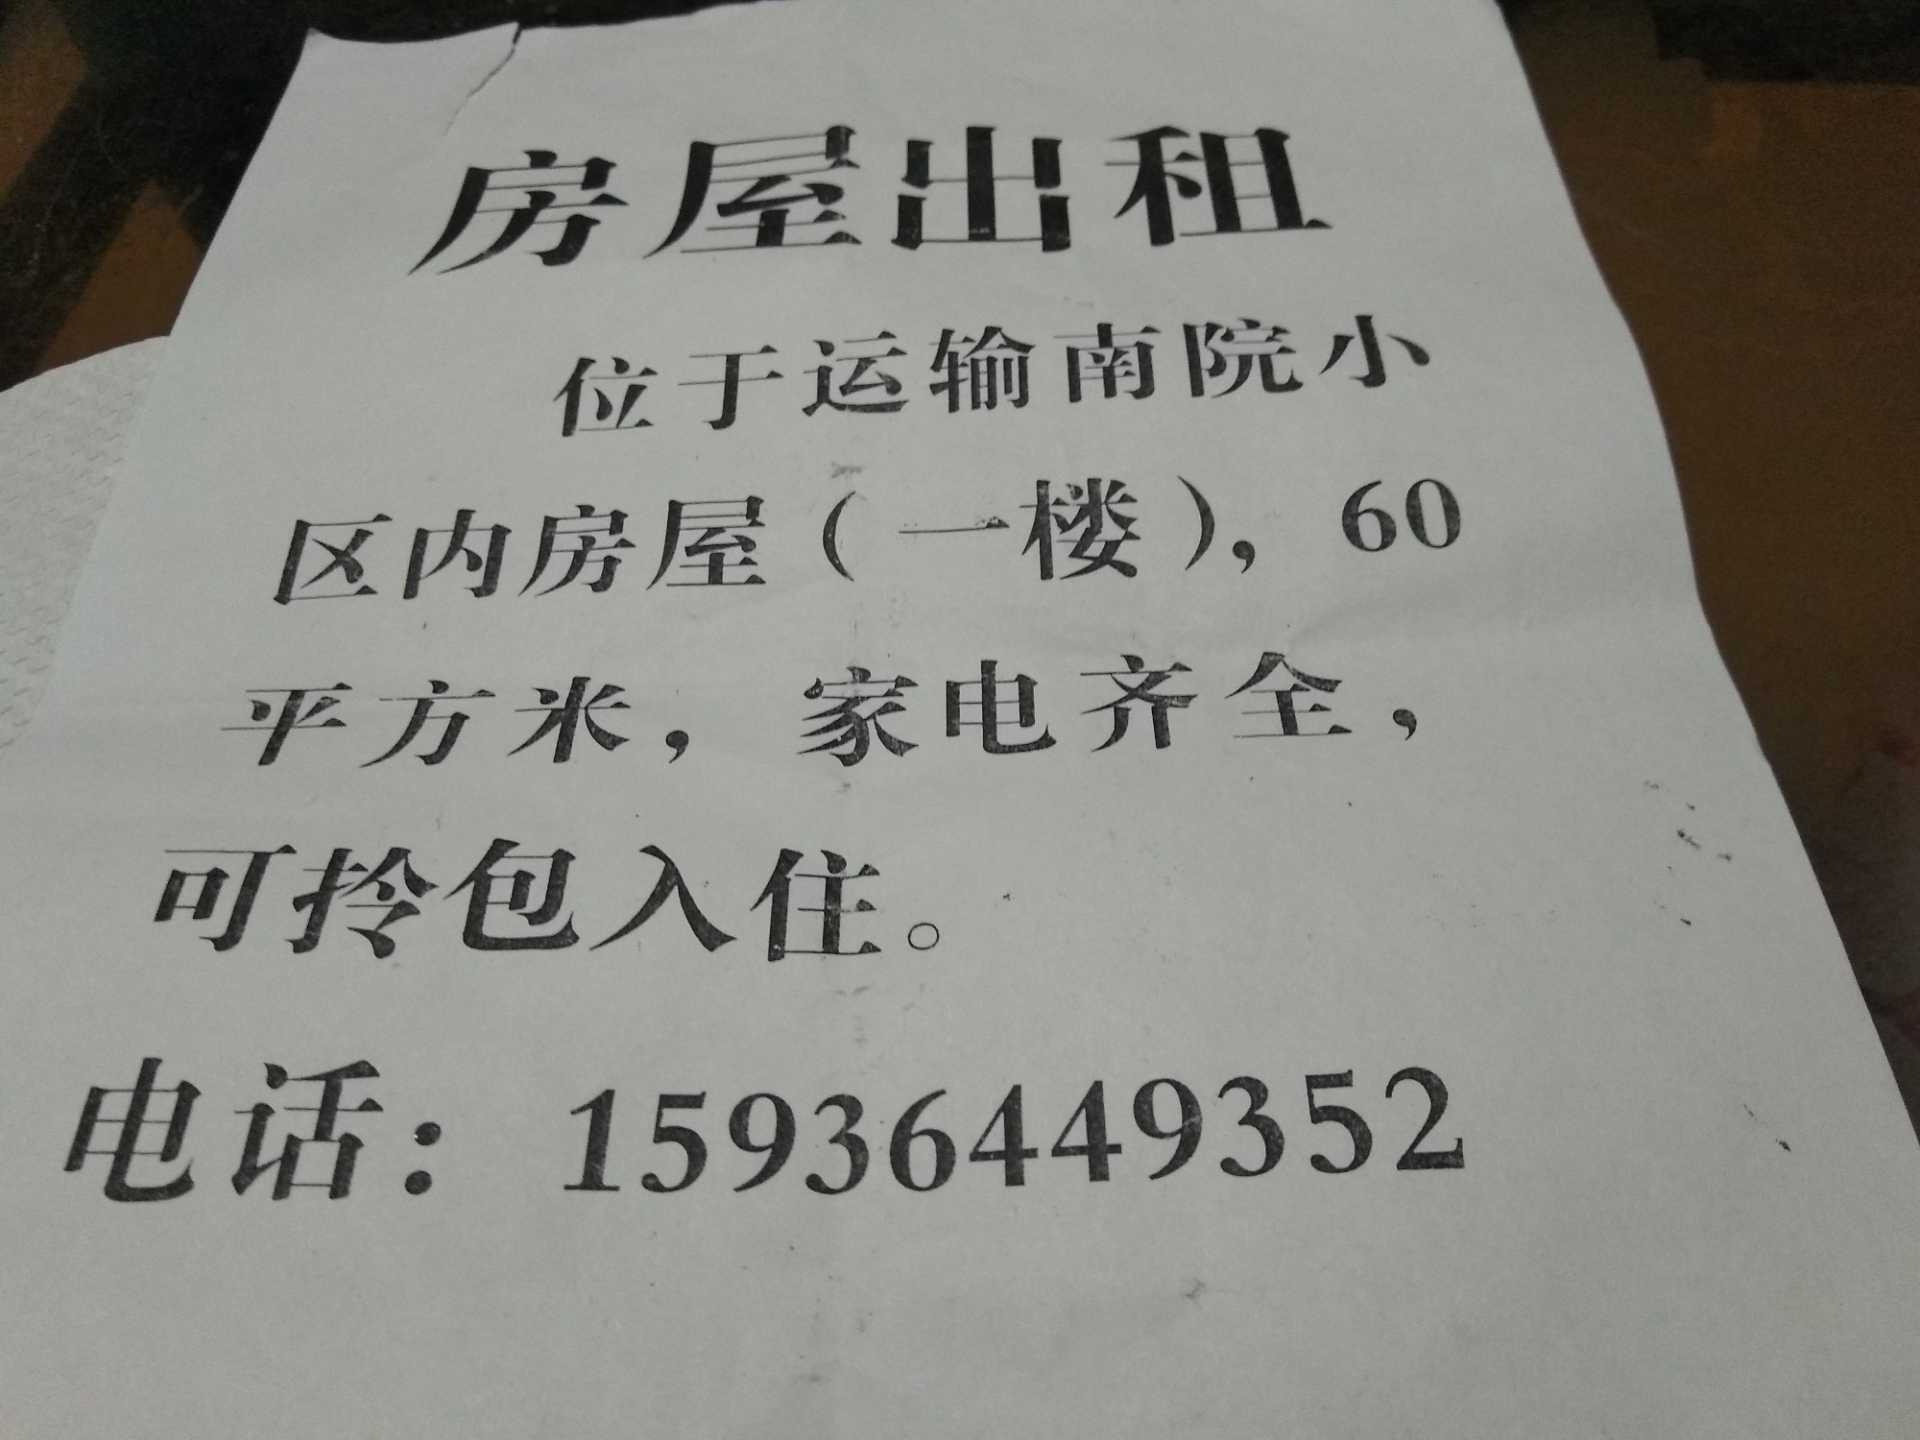 房屋出租
位于运输南院小
区内房屋（一楼），60
平方米，家电齐全，
可拎包入住。
电话：15936449352